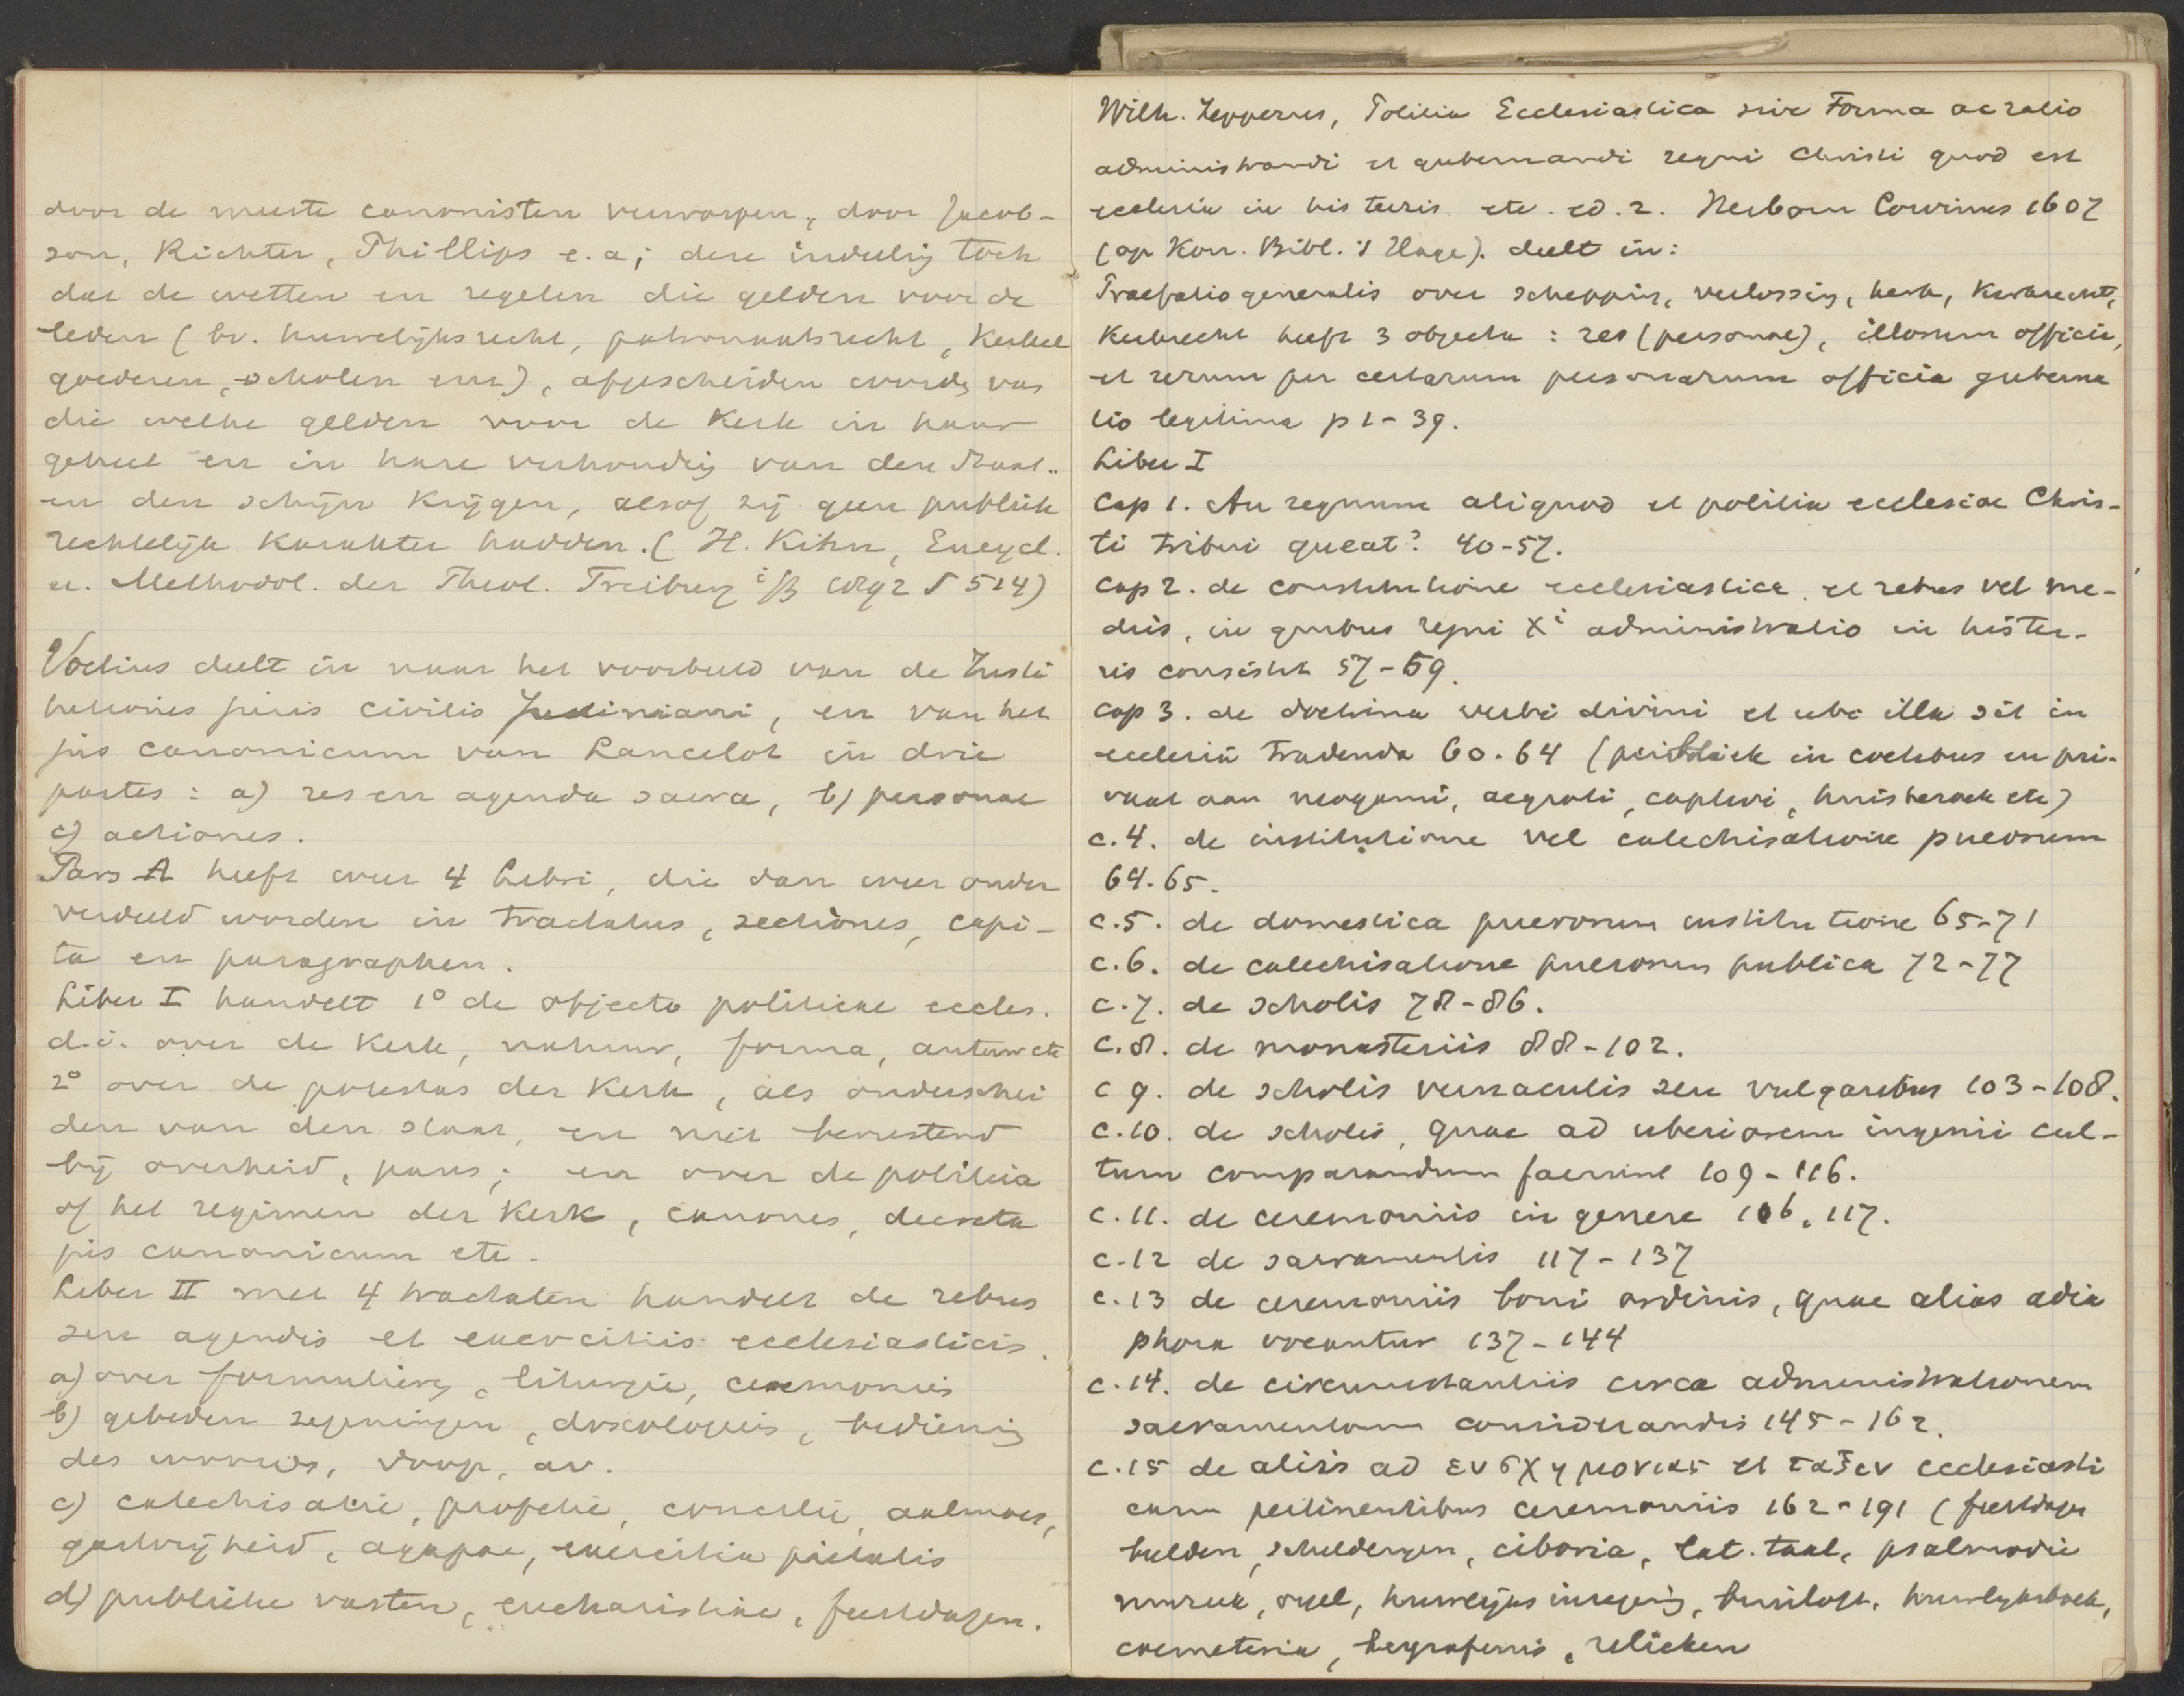 door de meeste canonisten verworpen, door Jacob-
son, Richter, Phillips e.a; deze indeeling toch
doet de wetten en regelen die gelden voor de
leden (bv. huwelijksrecht, patronaatsrecht, Kerkel
goederen, scholen enz), afgescheiden worden van
die welke gelden voor de Kerk in haar
geheel en in hare verhouding van den Staat
en den schijn krijgen, alsof zij geen publiek
rechtelijk karakter hadden. (H. Kihn, Encycl.
u. Methodol. der Theol. Freiburg i/B 1892 S 514)
Voetius deelt in naar het voorbeeld van de Insti
tutiones juris civilis Justiniani, en van het
jus canonicum van Lancelot in drie
partes: a) res en agenda sacra, b) personae
c) actiones.
Pars A heeft weer 4 Libri, die dan weer onder
verdeeld worden in tractatus, sectiones, capi-
ta en paragraphen.
Liber I handelt 1° de objecto politicae eccles.
d.i. over de Kerk, natuur, forma, auteur etc
2° over de potestas der Kerk, als onderschei
den van den staat, en niet berustend
bij overheid, paus; en over de politeia
of het regimen der Kerk, canones, decreta
jus canonicum etc.
Liber II met 4 tractaten handelt de rebus
seu agendis et exercitiis ecclesiasticis.
a) over formulieren, liturgie, ceremonies
b) gebeden zegeningen, doxologieen, bediening
des woords, doop, av.
c) catechisatie, profetie, concilie, aalmoes,
gastvrijheid, agapae, exercitia pietatis
d) publieke vasten, eucharistiae, feestdagen.
Wilh. Zepperus, Politia Ecclesiastica sive Forma ac ratio
administrandi et gubernandi regni Christi quod est
ecclesia in his terris etc. ed. 2. Herborn Corvinus 1607
(op Kon. Bibl. 's Hage). deelt in:
Praefatio generalis over schepping, verlossing, kerk, Kerkrecht,
Kerkrecht heeft 3 objecta: res (personae), illorum officia,
et rerum per certarum personarum officia guberna
tio legitima p 1-39.
Liber I
Cap 1. An regnum aliquod et politia ecclesiae Chris-
ti tribui queat? 40-57.
Cap 2. de constitutione ecclesiastica et rebus vel me-
diis, in quibus regni Xi administratio in his ter-
ris consistit 57-59.
Cap 3. de doctrina verbi divini et ubi illa sit in
ecclesia tradenda 60-64 (publiek in coetibus en pri-
vaat aan neogami, aegroti, captivi, huisbezoek etc)
c.4. de institutione vel catechisatione puerorum
64.65.
c.5. de domestica puerorum institutione 65-71
c.6. de catechisatione puerorum publica 72-77
c.7. de scholis 78-86.
c.8. de monasteriis 88-102.
c 9. de scholis vernaculis seu vulgaribus 103-108.
c.10. de scholis, quae ad uberiorem ingenii cul-
tum comparandum faciunt 109-116.
c.11. de ceremoniis in genere 116, 117.
c.12 de sacramentis 117-137
c.13 de ceremoniis boni ordinis, quae alias adia
phora vocantur 137-144
c.14. de circumstantiis circa administrationem
sacramentorum considerandis 145-162.
c.15 de aliis ad ευσχημονιας et ταξιν ecclesiasti
cam pertinentibus ceremoniis 162-191 (feestdagen
beelden, schilderijen, ciboria, lat. taal, psalmodie
muziek, orgel, huwelijks inzegening, bruiloft, huwelijksboek,
coemeteria, begrafenis, relieken